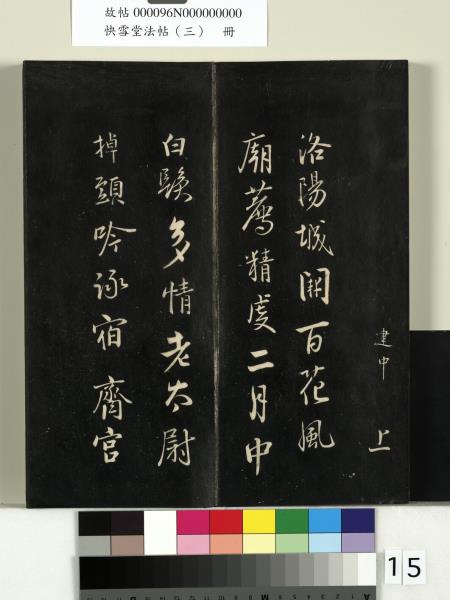 故帖 000096N000000000
快雪堂法帖（三） 冊
建中 上
洛陽城開百花風
廟薦精虔二月中
白鬚多情老太尉
掉頭吟詠宿齋宮
15